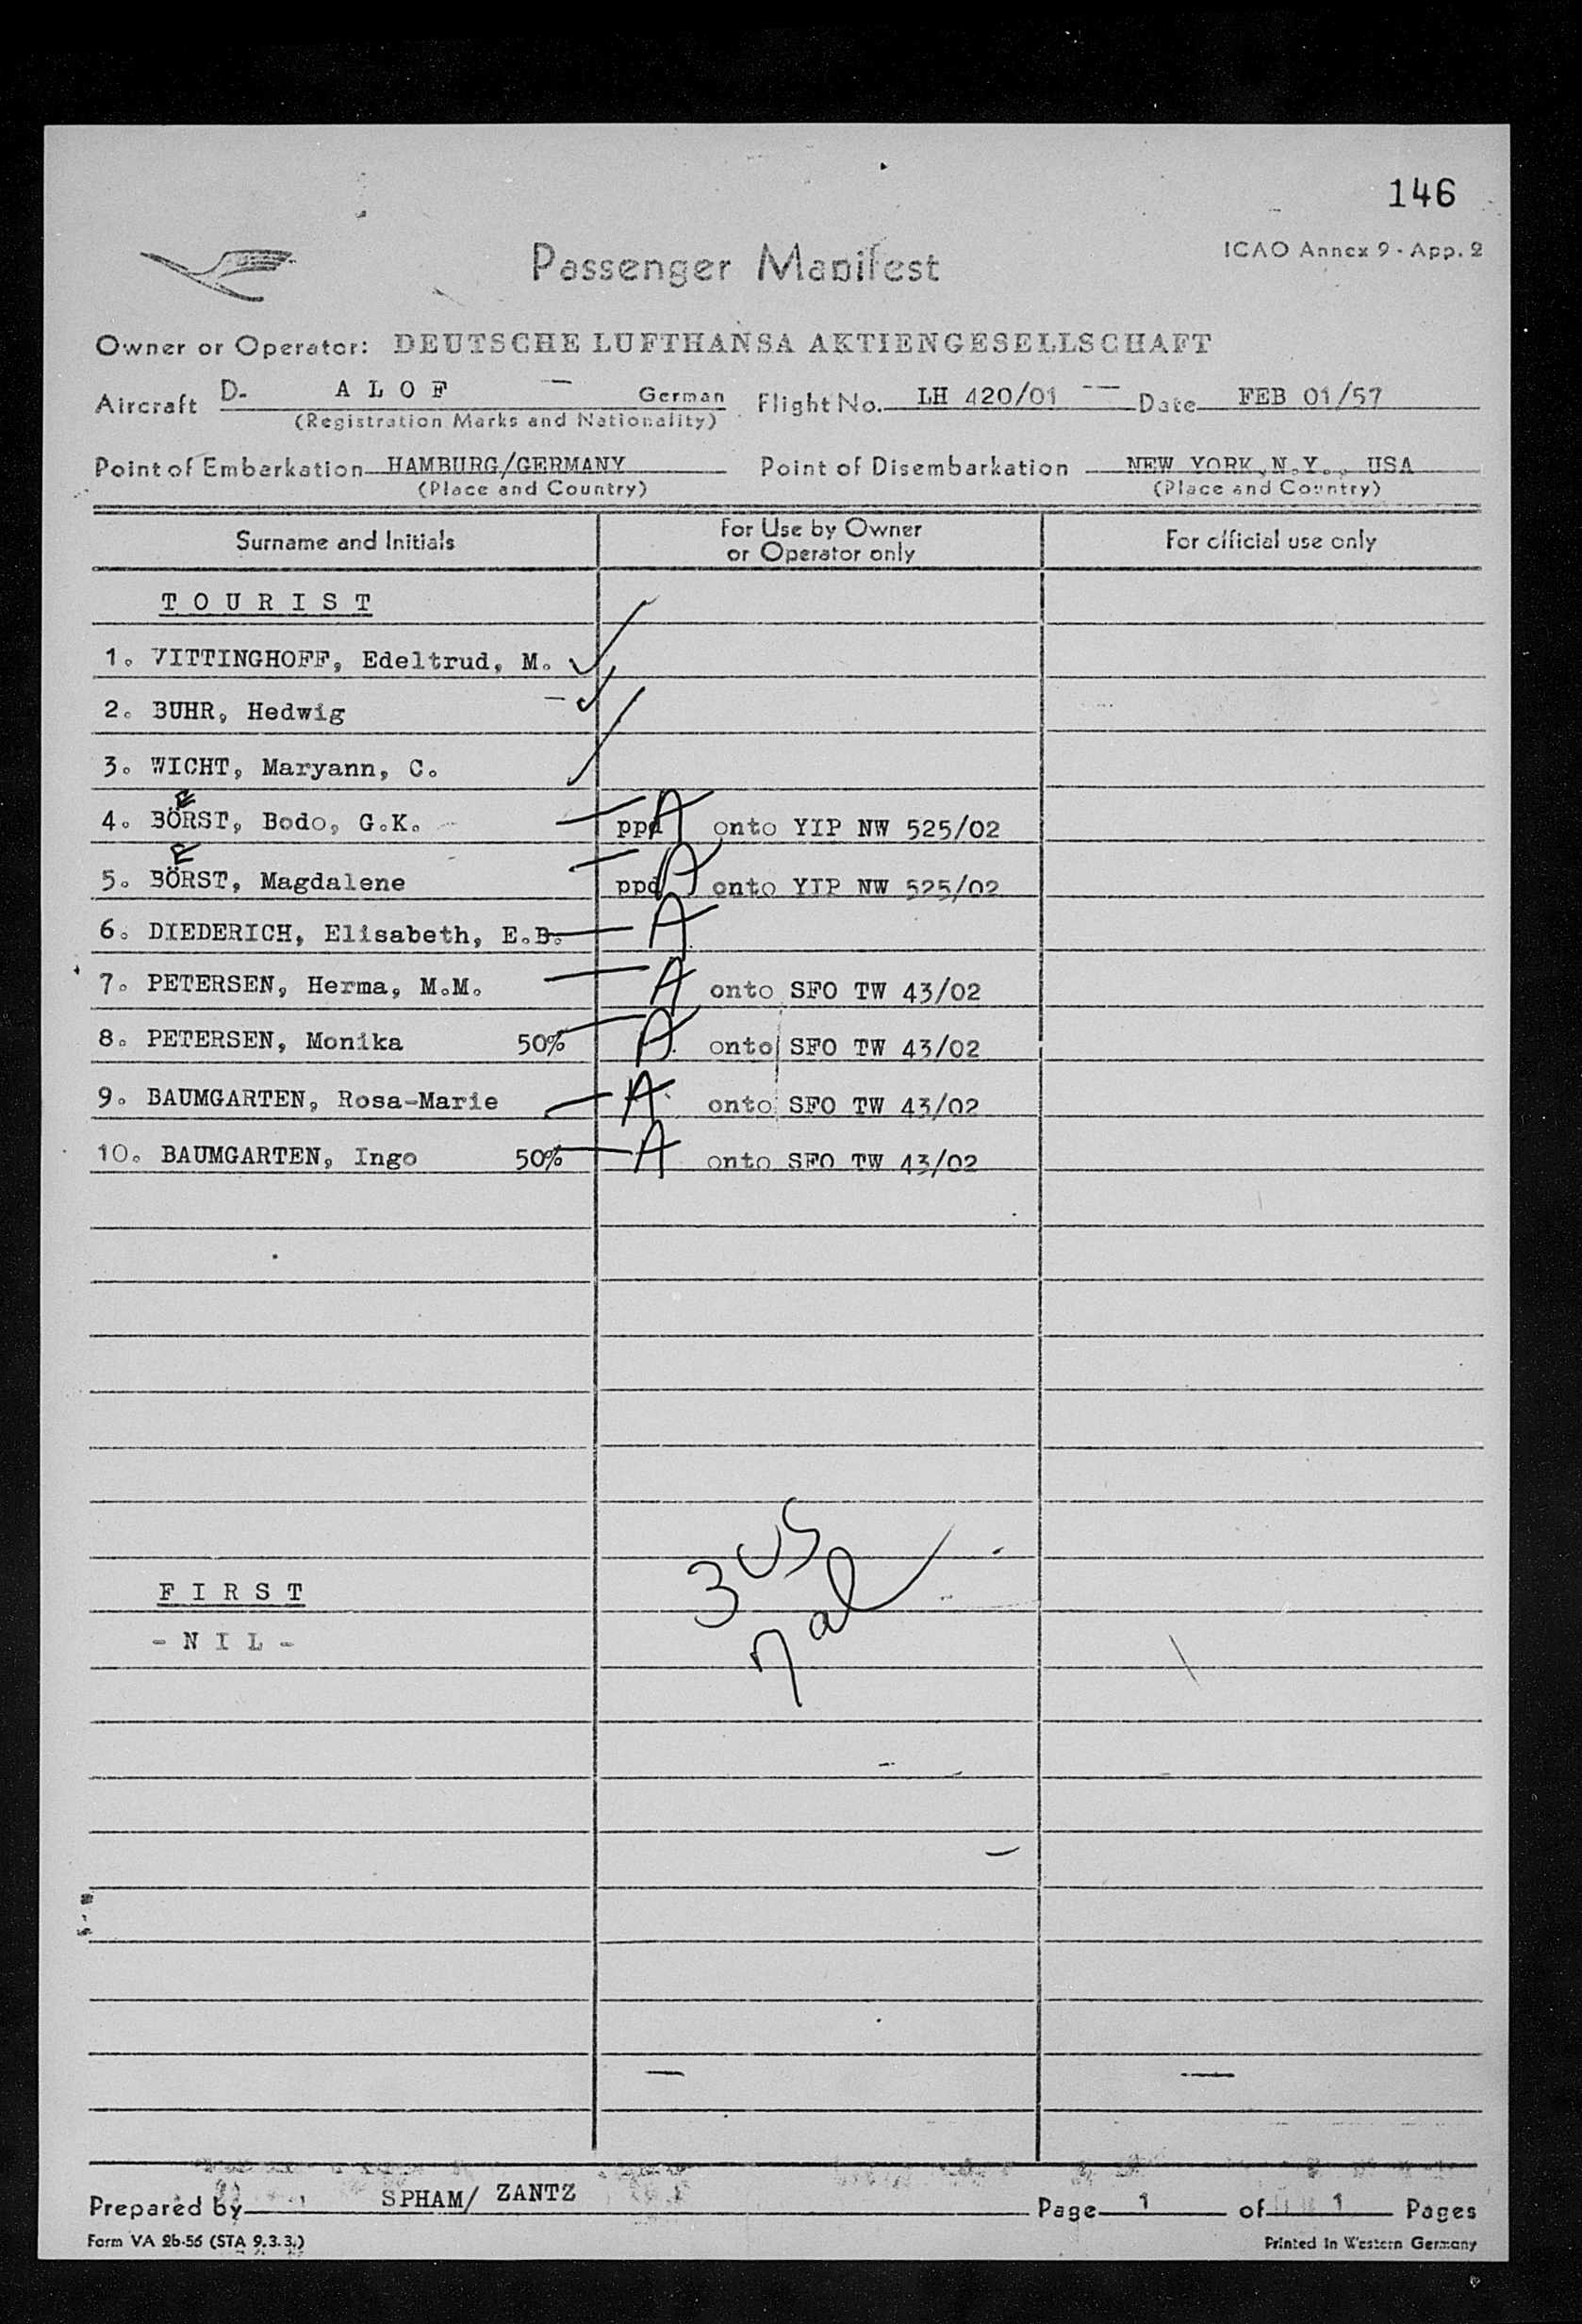 146
ICAO Annex 9 - App. 2
Passenger Manifest
Owner or Operator: DEUTSCHE LUFTHANSA AKTIENGESELLSCHAFT
Aircraft D- A L O F — German Flight No. LH 420/01 — Date FEB 01/57
(Registration Marks and Nationality)
Point of Embarkation HAMBURG/GERMANY Point of Disembarkation NEW YORK, N.Y., USA
(Place and Country) (Place and Country)
Surname and Initials For Use by Owner or Operator only For official use only
T O U R I S T
1. VITTINGHOFF, Edeltrud, M.
2. BUHR, Hedwig
3. WICHT, Maryann, C.
E
4. BÖRST, Bodo, G.K. ppd A onto YIP NW 525/02
E
5. BÖRST, Magdalene ppd A onto YIP NW 525/02
6. DIEDERICH, Elisabeth, E.B. A
7. PETERSEN, Herma, M.M. A onto SFO TW 43/02
8. PETERSEN, Monika 50% A onto SFO TW 43/02
9. BAUMGARTEN, Rosa-Marie A onto SFO TW 43/02
10. BAUMGARTEN, Ingo 50% A onto SFO TW 43/02
3 US
7 al
F I R S T
- N I L -
Prepared by SPHAM/ ZANTZ Page 1 of 1 Pages
Form VA 2b-56 (STA 9.3.3.) Printed in Western Germany